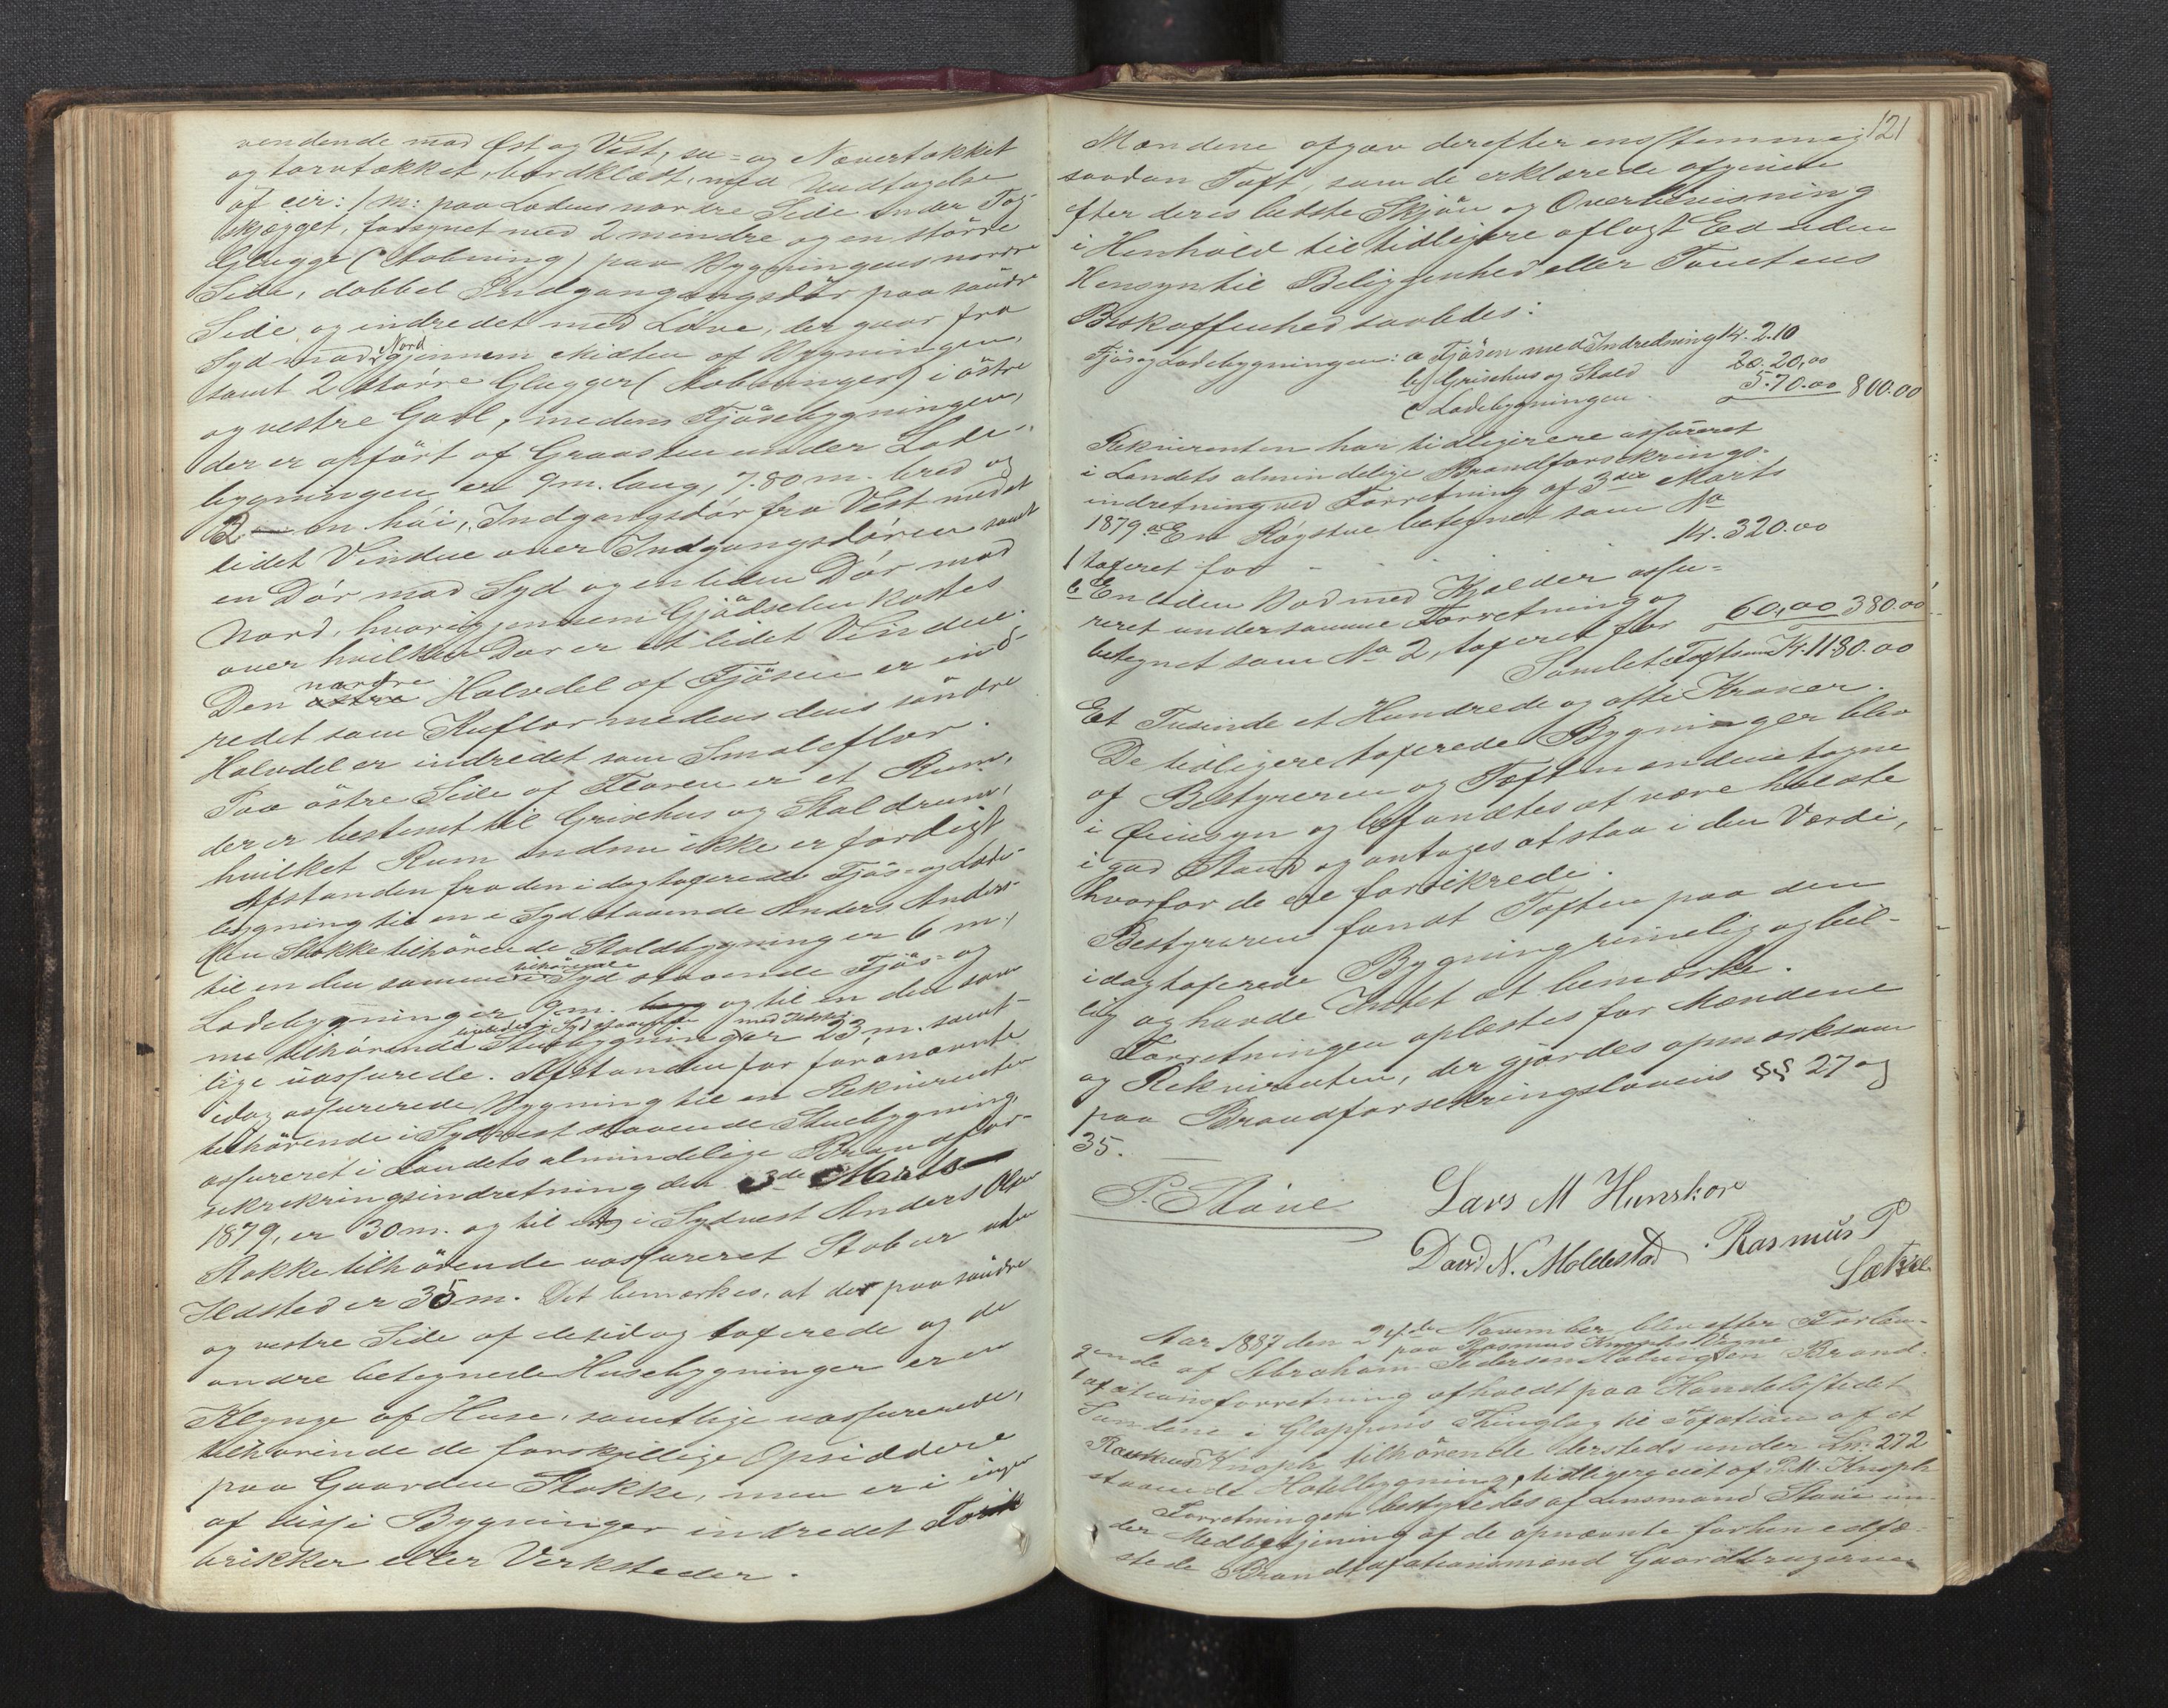 vendende mod Øst og Vest, su- og Nævertækket
og tørvtækket, bordklædt, med Undtagelse
af cir: 1 m: paa Ladens nordre Side under Tag-
skjægget, forsynet med 2 mindre og en större
Glugge (Aabning) paa Bygningens nordre
Side, dobbel Indgangangsdör paa söndre
Side og indredet med Löve, der gaar fra
Syd mod Nord gjennem Midten af Bygningen,
samt 2 större Glugger (Aabninger) i östre
og vestre Gavl, medens Fjösebygningen,
der er opfört af Graasten under Lade-
bygningen er 9 m. lang, 7.80 m. bred og
2 m höi, Indgangsdör fra Vest med et
lidet Vindue over Indgangsdören samt
en Dör mod Syd og en liden Dör mod
Nord, hvorigjennem Gjödselen kastes
over hvilken Dør er et lidet Vindue.
Den nordre Halvdel af Fjösen er ind-
redet som Kuflor medens dens söndre
Halvdel er indredet som Smaleflor.
Paa östre Side af Floren er et Rum,
der er bestemt til Grisehus og Staldrum,
hvilket Rum endnu ikke er færdigt.
Afstanden fra den idag taxerede Fjös- og Lade-
bygning til en i Syd staaende Anders Anders-
sen Stokke tilhörende Staldbygning er 6 m,
til en den samme tilhörende i Syd staaende Fjös- og
Ladebygning er 9 m. og til en den sam
me tilhörende ligeledes i Syd staaende Stuebygning med Ildsted er 23 m. samt-
lige uassurede. Afstanden for forannævnte
idag assurerede Bygning til en Rekvirenten
tilhörende i Sydvest staaende Stuebygning
assureret i Landets almindelige Brandfor-
sekrekringsindretning den 3de Marts
1879, er 30 m. og til en i Sydvest Anders Olsen
Stokke tilhörende uassureret Stabur uden
Ildsted er 35 m. Det bemærkes, at der paa söndre
og vestre Side af de idag taxerede og de
andre betegnede Husebygninger er en
Klynge af Huse, samtlige uassurerede,
tilhörende de forskjellige Opsiddere
paa Gaarden Stokke, men er i ingen
af disse Bygninger indredet Fa
brikker eller Verksteder.
121
Mændene afgav derefter enstemmig
saadan Taxt, som de erklærede afgivne
efter deres bedste Skjön og Overbevisning
i Henhold til tidligere aflagt Eed uden
Hensyn til Beliggenhed eller Tomtens
Beskaffenhed saaledes:
Fjös og Ladebygningen: a Fjösen med Indredning Kr. 210
b) Grisehus og Stald 20.00
c Ladebygningen 570.00 800.00
Rekvirenten har tidligere assureret
i Landets almindelige Brandforsekrings-
indretning ved Forretning af 3die Marts
1879 a En Røgstue betegnet som No
1 taxeret for - - Kr. 320.00
b En liden Bod med Kjelder assu-
reret under samme Forretning og
betegnet som No 2, taxeret for 60,00 380.00
Samlet Taxtsum Kr. 1180.00
Et Tusinde et Hundrede og otti Kroner.
De tidligere taxerede Bygninger blev
af Bestyreren og Taxtmændene tagne
i Öiensyn og befandtes at være holdte
i god Stand og antages at staa i den Værdi,
hvorfor de ere forsikrede.
Bestyreren fandt Taxten paa den
idag taxerede Bygning rimelig og bil-
lig og havde Intet at bemærke.
Forretningen oplæstes for Mændene
og Rekvirenten, der gjordes opmærksom
paa Brandforsekringslovens §§ 27 og
35.
P. Støve Lars M Hunskor
David N. Moldestad Rasmus P
Sætre
Aar 1887 den November blev efter Forlan-
gende af Abrahom Pedersen paa Rasmus Knophs Vegne en Brand-
taxationsforretning afholdt paa Handelsstedet
Sandene i Gloppens Thinglag til Taxation af et
Rasmus Knoph tilhörende dersteds under Ln: 272
staaende Hotelbygning, tidligere eiet af P. M. Knoph
Forretningen bestyredes af Lensmand Støve un-
der Medbetjening af de opnævnte forhen edfæ-
stede Brandtaxationsmænd Gaardbrugerne